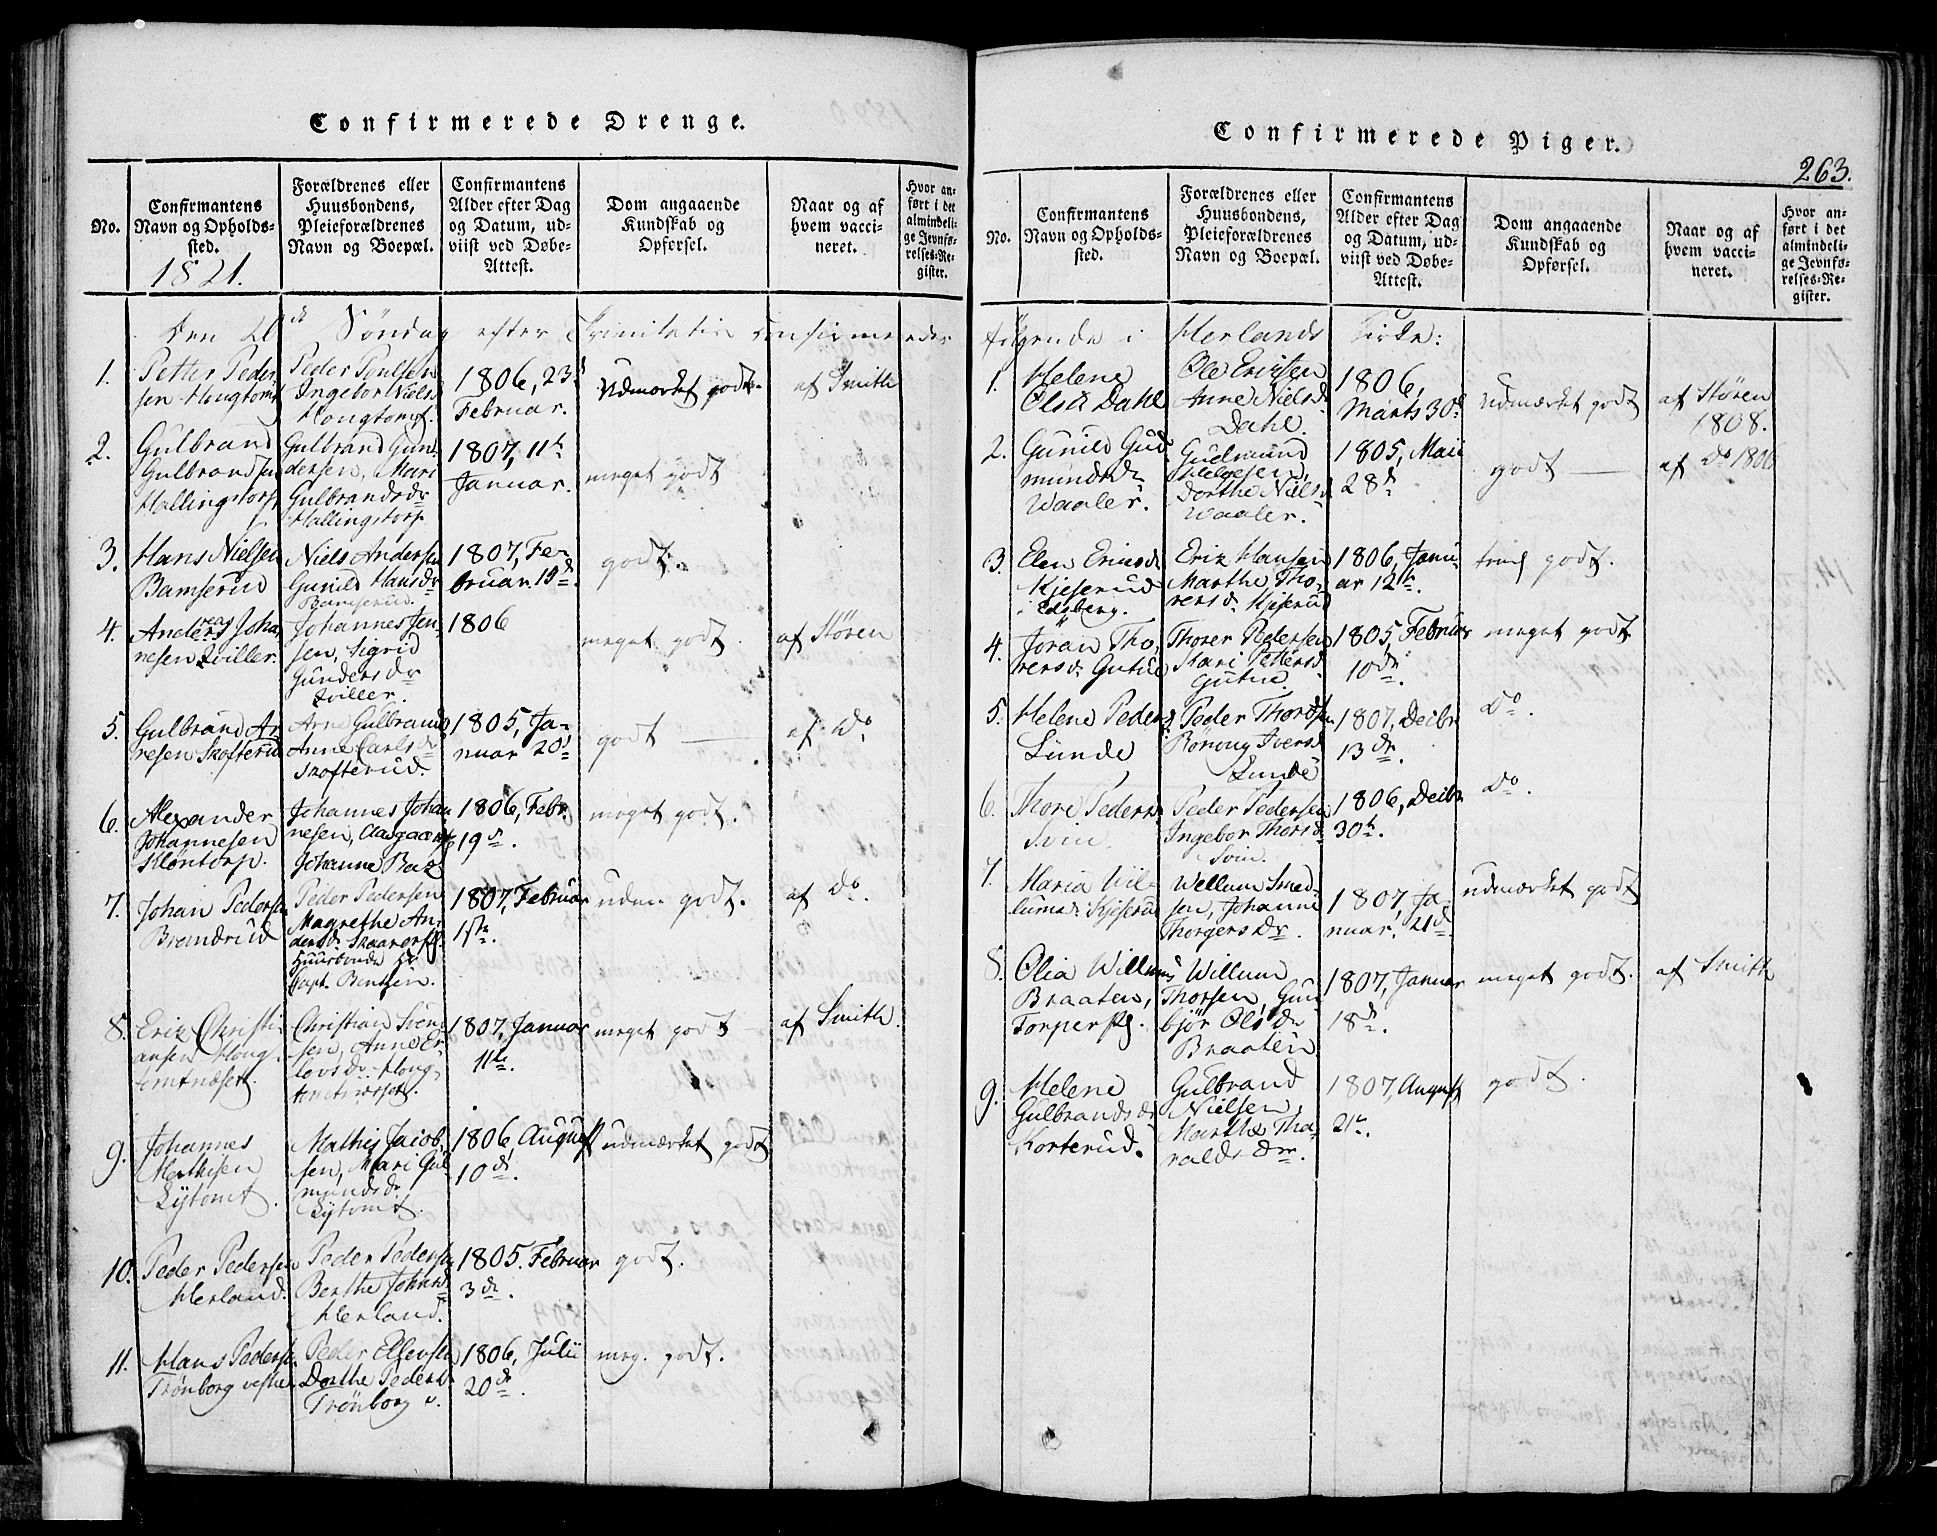 Confirmerede Drenge.
No.
Confirmantens
Navn og Opholds-
sted.
1821.
Forældrenes eller
Huusbondens,
Pleieforældrenes
Navn og Boepæl.
Confirmantens
Alder efter Dag
og Datum, ud-
viist ved Døbe-
Attest.
Dom angaaende
Kundskab og
Opførsel.
Naar og af
hvem vacci-
neret.
Hvor an-
ført i det
almindeli-
ge Jevnfø-
relses-Re-
gister.
Den 20de Søndag efter Trinitatis confirmeredes
1.
Petter Peder
sen Hougtomt
Peder Poulsen
Ingebor Niels
Hougtomt.
1806, 23d
Februar.
Udmærket godt.
af Smith
2.
Gulbrand
Gulbrandsen
Hallingstorp
Gulbrand Gun-
dersen, Mari
Gulbrandsdr
Hallingstorp
1807, 11te
Januar.
meget godt
3.
Hans Nielsen
Bamserud
Niels Andersen
Gunild Hansdr
Bamserud.
1807, Fe-
bruar 15d.
godt.
4.
Andreas Joha-
nesen Zviller.
Johannes Jen-
sen, Sigrid
Gundersdr
Zviller.
1806
meget godt
af Støren
5.
Gulbrand Ar
nesen Skofterud
Arne Gulbrands
Anne Carlsdr
Skofterud.
1805, Ja-
nuar 20d
godt
af Do
6.
Alexander
Johannesen
Kløntorp.
Johannes Johan
nesen, Aasgaard
Johanne
1806, Febr.
19d.
meget godt.
7.
Johan Pedersen
Brandrud
Peder Pedersen
Magrethe An-
dersdr
Huusbonde Hr
Capt.
1807, Februar
1ste.
udm. godt.
af Do
8.
Erik Christi-
ansen Houg-
tomtnæset.
Christian Sven-
sen, Anne Er-
levsdr Houg-
tomtnæset.
1807, Januar
11te.
meget godt
af Smith.
9.
Johannes
Mathisen
Lystomt.
Mathis Jacob
sen, Mari Gul
mundsdr
Lystomt.
1806 August
10d.
udmærket godt
10.
Peder Pedersen
Herland.
Peder Pedersen
Berthe Johansd
Herland.
1805. Februar
3de.
godt.
11.
Hans Pedersen
Trønborg vestre
Peder Ellevsen
Dorthe Pedersd.
Trønborg v.
1806, Julii
20de.
meg. godt.
Confirmerede Piger.
263.
No.
Confirmantens
Navn og Opholds-
sted.
Forældrenes eller
Huusbondens,
Pleieforældrenes
Navn og Boepæl.
Confirmantens
Alder efter Dag
og Datum, ud-
viist ved Døbe-
Attest.
Dom angaaende
Kundskab og
Opførsel.
Naar og af
hvem vacci-
neret.
Hvor an-
ført i det
almindeli-
ge Jevnfø-
relses-Re-
gister.
følgende i Herlands Kirke:
1.
Helene
Olsdr Dahl
Ole Erichsen
Anne Nielsdr
Dahl.
1806,
Marts 30d
Udmærket godt
af Støren
1808.
2.
Gunild Gud
mundsdr
Waaler.
Gudmund
Helgesen,
Dorthe Nielsd
Waaler.
1805, Maii
28d
godt
af Do 1806
3.
Elen Ericsdr
Kjeserud
i Edsberg.
Erik Hansen
Marthe Tho-
rersdr Kjeserud
1806, Janu-
ar 12te.
godt.
4.
Jöran Tho-
rersdr Gutue
Thorer Pedersen
Kari Pettersd
Gutue.
1805, Februar
10de.
meget godt
5.
Helene Pedersd
Lunde
Peder Thordsen
Rønnug Iversd
Lunde
1807, Decbr
13de.
Do.
6.
Thore Pedersd
Svin.
Peder Pedersen
Ingebor Thorsdr
Svin.
1806, Decbr
30te.
Do.
7.
Maria Wil-
lumsdr Kjeserud
Wellum Smed-
sen, Johanne
Thorgersdr.
1807, Ja-
nuar, 21d.
udmærket godt
8.
Olia Willums
Braaten,
Torper
Willum
Thorsen, Gun
bjør Olsdr
Braaten
1807, Januar
18d.
meget godt.
af Smith
9.
Helene
Gulbrandsdr
Korterud.
Gulbrand
Nielsen,
Marthe Tha-
raldsdr.
1807, August
21te.
godt.